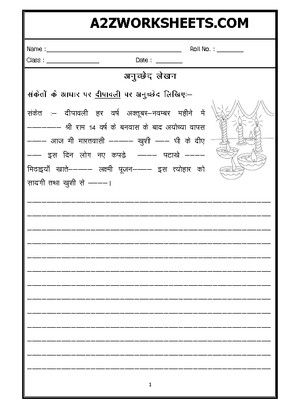 A2ZWORKSHEETS.COM
Name : Roll No. :
Class : Date :
अनुच्छेद लेखन
संकेतों के आधार पर दीपावली पर अनुच्छेद लिखिए:-
संकेत :- दीपावली हर वर्ष अक्तूबर-नवम्बर महीने मे
------- श्री राम 14 वर्ष के बनवास के बाद अयोध्या वापस
---- आज भी भारतवासी ----- खुशी --- घी के दीए
--- इस दिन लोग नए कपड़े ---- पटाखे ----
मिठाइयाँ खाते----- लक्ष्मी पूजन----- इस त्योहार को
सादगी तथा खुशी से ----।
1